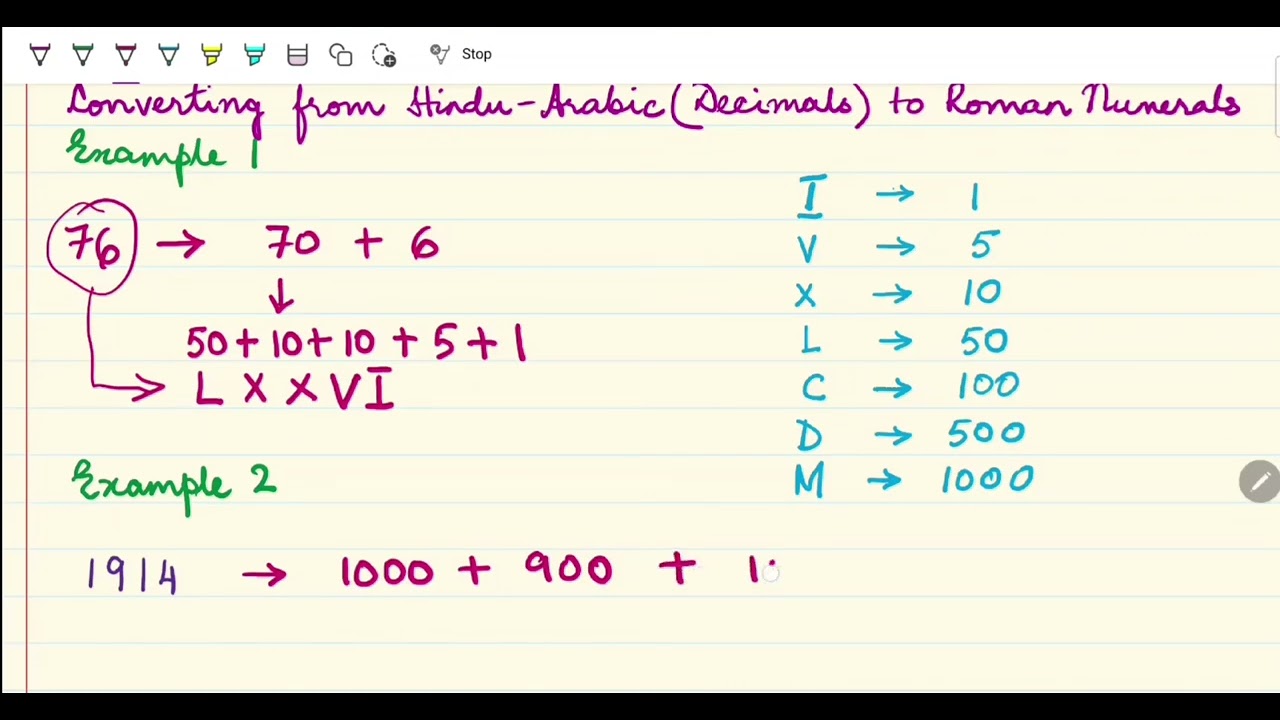 Stop
Converting from Hindu-Arabic (Decimals) to Roman Numerals
Example 1
76 → 70 + 6
↓
50+10+10+5+1
L X X V I
I → 1
V → 5
X → 10
L → 50
C → 100
D → 500
M → 1000
Example 2
1914 → 1000 + 900 + 1